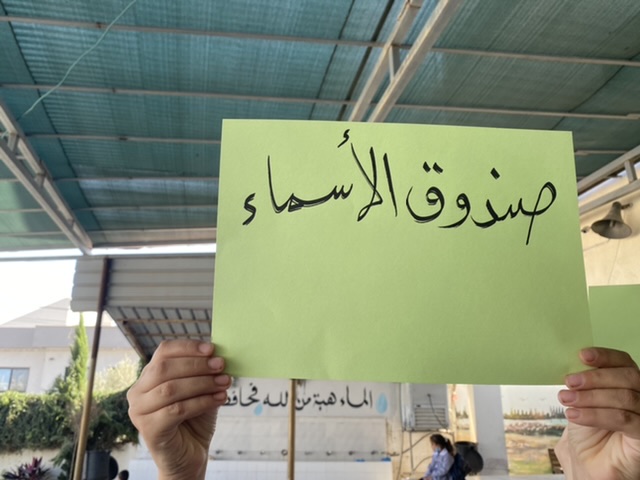 صندوق الأسماء
الماء هبة من لله فحافظ